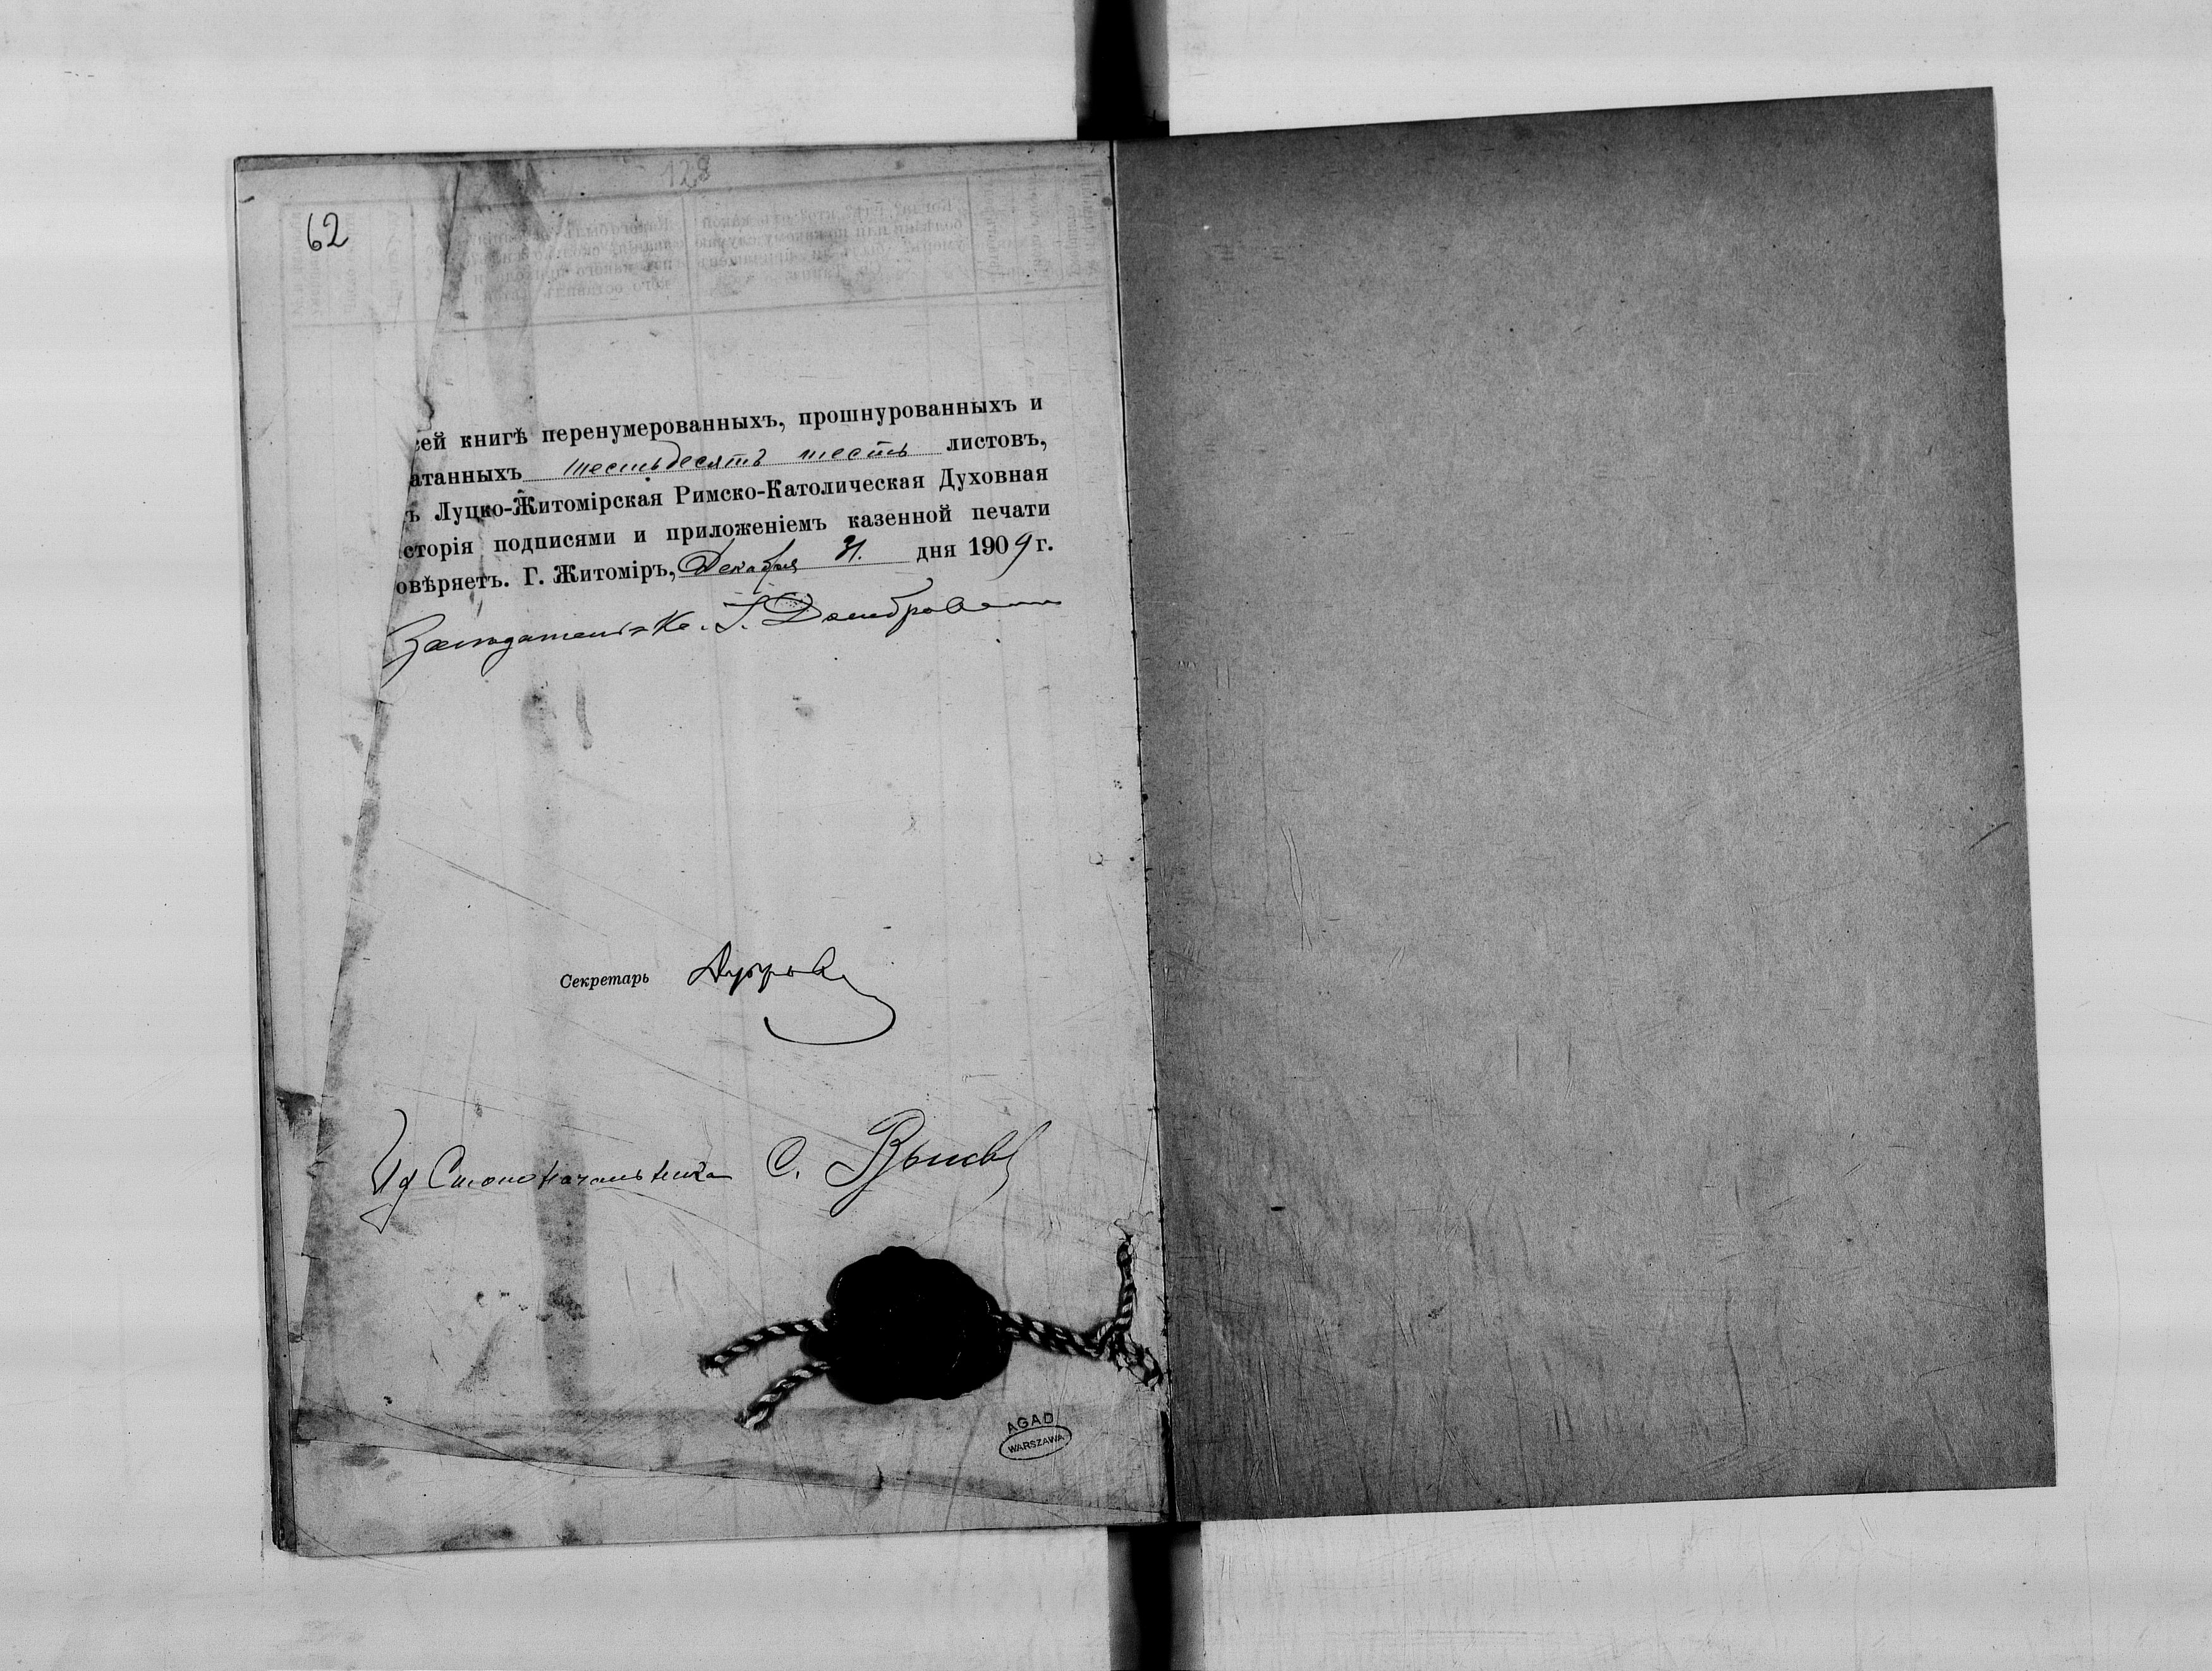 128
62
сей книгѣ перенумерованныхъ, прошнурованныхъ и
атанныхъ шестьдесятъ шесть листовъ,
ъ Луцко-Житомірская Римско-Католическая Духовная
сторія подписями и приложеніемъ казенной печати
овѣряетъ. Г. Житоміръ, Декабря 31. дня 1909 г.
Засѣдатель Кс. І. Домбровскій
Секретарь
Ид Столоначальника С.
AGAD
WARSZAWA